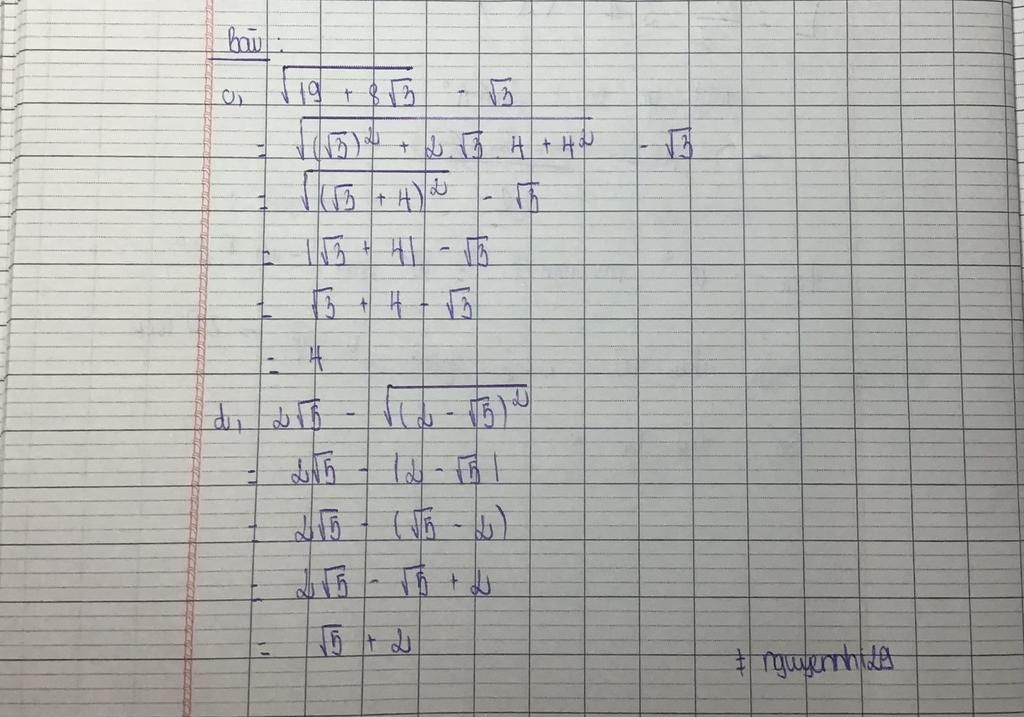 Bài :
c, √(19 + 8√3) - √3
= √((√3)² + 2.√3.4 + 4²) - √3
= √((√3 + 4)²) - √3
= |√3 + 4| - √3
= √3 + 4 - √3
= 4
d, 2√5 - √((2 - √5)²)
= 2√5 - |2 - √5|
= 2√5 - (√5 - 2)
= 2√5 - √5 + 2
= √5 + 2
# nguyennh129